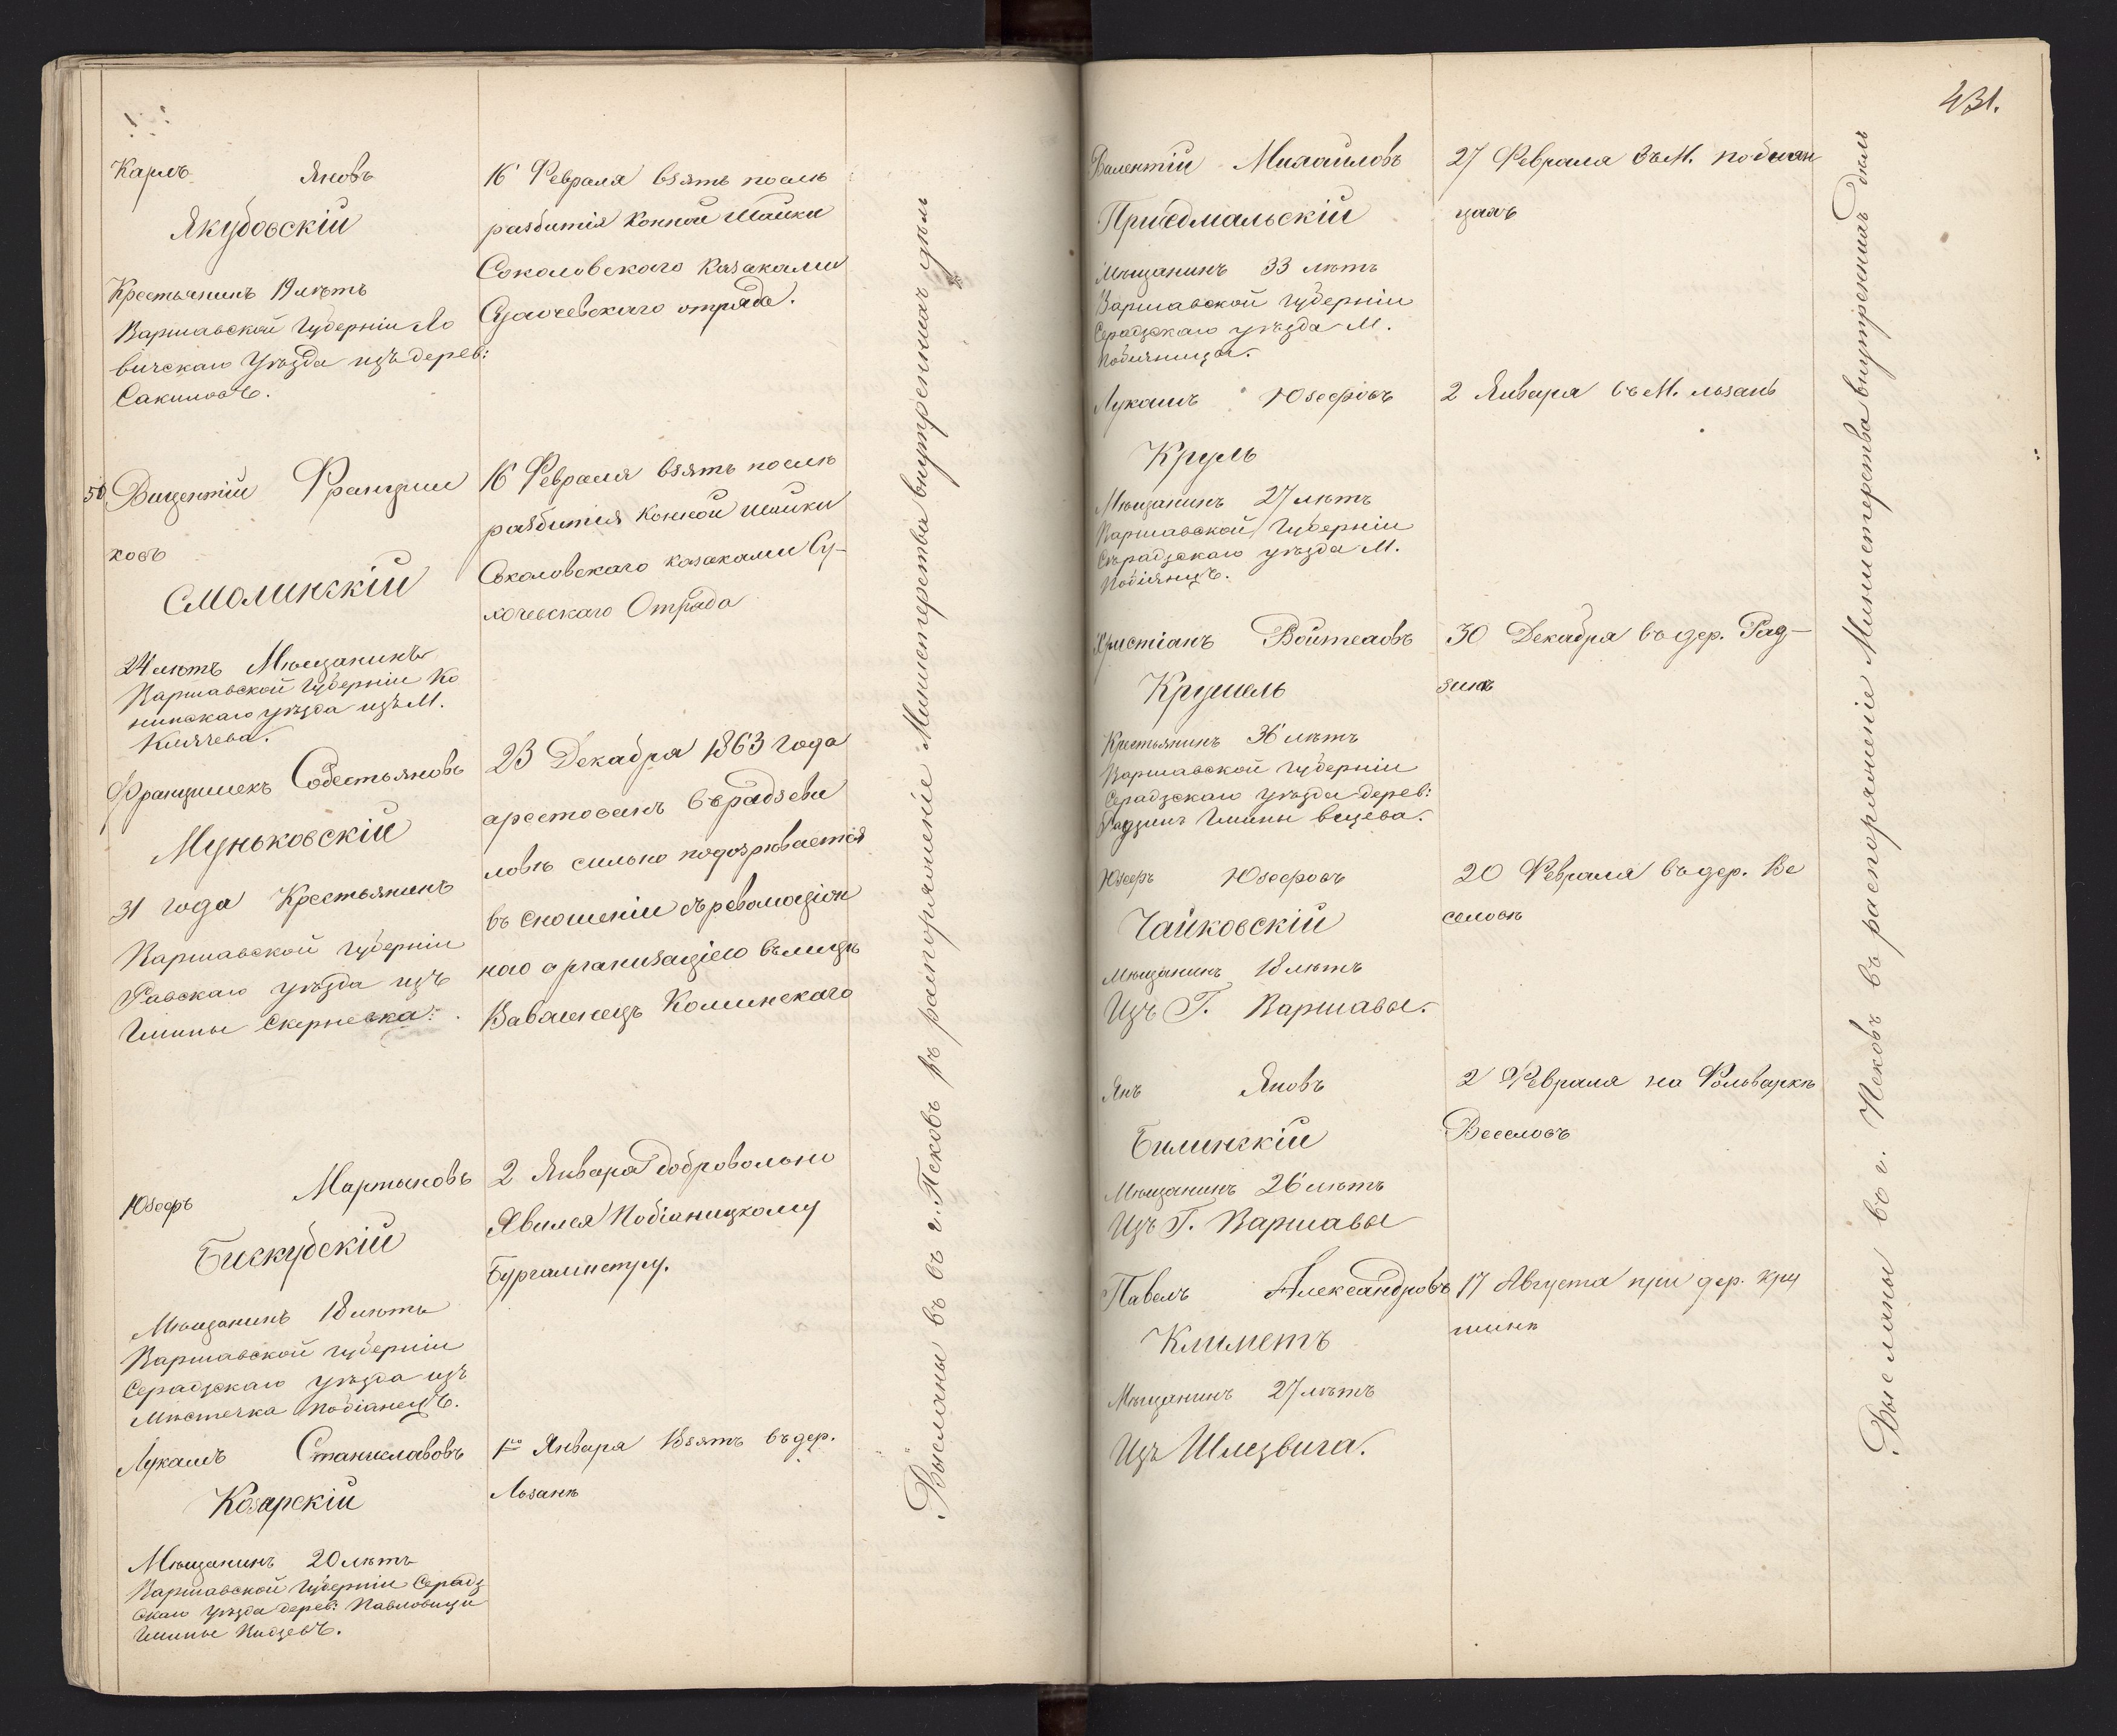 Карлъ Яновъ
Якубовскій
Крестьянинъ 19 лѣтъ
Варшавской Губерніи Ло
вичскаго Уѣзда изъ дерев:
16 Февраля взятъ послѣ
разбитія Конной Шайки
Соколовскаго Казаками
отряда.
50 Вицентій Францыш
ковъ
Смолинскій
24 лѣтъ Мѣщанинъ
Варшавской Губерніи Ко
нинскаго уѣзда изъ М.
16 Февраля взятъ послѣ
разбитія Конной шайки
Соколовскаго казаками Су-
хочевскаго Отряда
Францишекъ Собестьяновъ
Муньковскій
31 года Крестьянинъ
Варшавской Губерніи
Равскаго уѣзда изъ
Гмины Скерневка.
23 Декабря 1863 года
арестованъ въ
ловѣ сильно подозрѣвается
въ сношеніи съ революціон
ною организаціею въ лицѣ
Коминскаго
Юзефъ Мартыновъ
Бискубскій
Мѣщанинъ 18 лѣтъ
Варшавской губерніи
Серадзскаго уѣзда изъ
Мѣстечка Побіанецъ.
2 Января добровольно
Явился Побіаницкому
Бургамистру.
Лукашъ Станиславовъ
Козарскій
Мѣщанинъ 20 лѣтъ
Варшавской Губерніи Серадз
скаго уѣзда дерев: Павловици
Гмины
1го Января Взятъ въ дер.
Лѣзанѣ
Высланы въ г. Псковъ въ распоряженіе Министерства внутреннихъ дѣлъ
431.
Валентій Михайловъ
Пршедмальскій
Мѣщанинъ 33 лѣтъ
Варшавской Губерніи
Серадзскаго уѣзда М.
27 Февраля въ М. побіян
цахъ
Лукашъ Юзефовъ
Круль
Мѣщанинъ 27 лѣтъ
Варшавской Губерніи
Сѣрадзскаго уѣзда М.
Побіянцъ.
2 Января въ М. лѣзанѣ
Христіанъ Войтеховъ
Крушель
Крестьянинъ 36 лѣтъ
Варшавской Губерніи
Серадзскаго уѣзда дерев:
Радзинъ Гмины вецева.
30 Декабря въ дер. Рад-
зинѣ
Юзефъ Юзефовъ
Чайковскій
Мѣщанинъ 18 лѣтъ
Изъ Г. Варшавы.
20 Февраля въ дер. Ве
селовѣ
Янъ Яновъ
Билинскій
Мѣщанинъ 26 лѣтъ
Изъ Г. Варшавы
2 Февраля на Фольваркѣ
Веселовъ
Павелъ Александровъ
Климетъ
Мѣщанинъ 27 лѣтъ
Изъ Шлезвига.
17 Августа при дер. Кру
шинѣ
Высланы въ г. Псковъ въ распоряженіе Министерства внутреннихъ дѣлъ